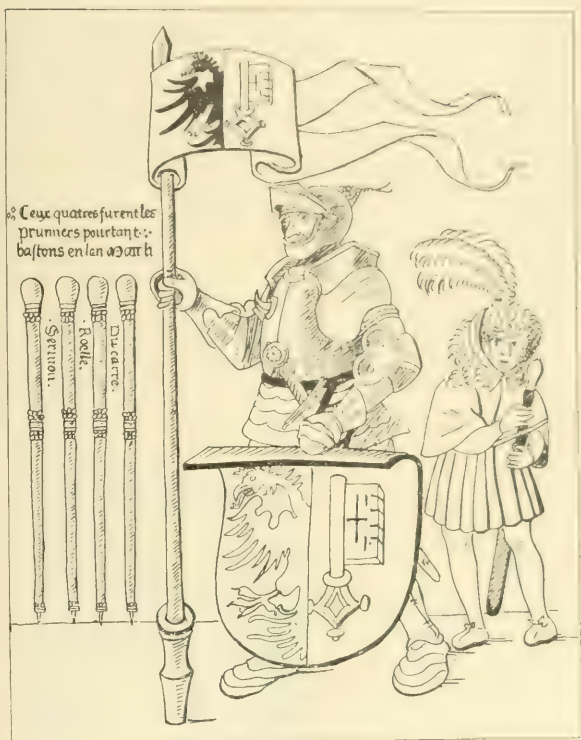 Ceux quatres furent les
prunniers pourtant
bastons en lan
Sermon.
Roelle.
Ducarre.